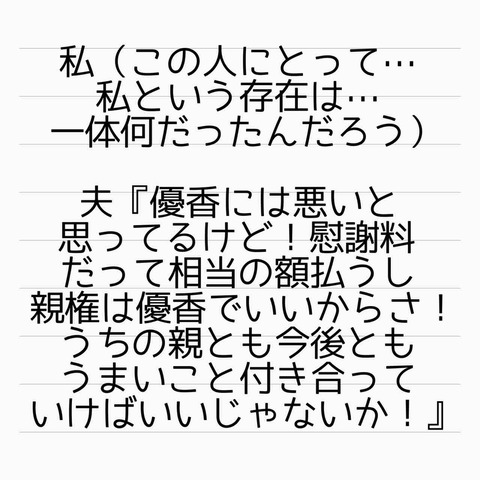 私（この人にとって…
私という存在は…
一体何だったんだろう）
夫『優香には悪いと
思ってるけど！慰謝料
だって相当の額払うし
親権は優香でいいからさ！
うちの親とも今後とも
うまいこと付き合って
いけばいいじゃないか！』